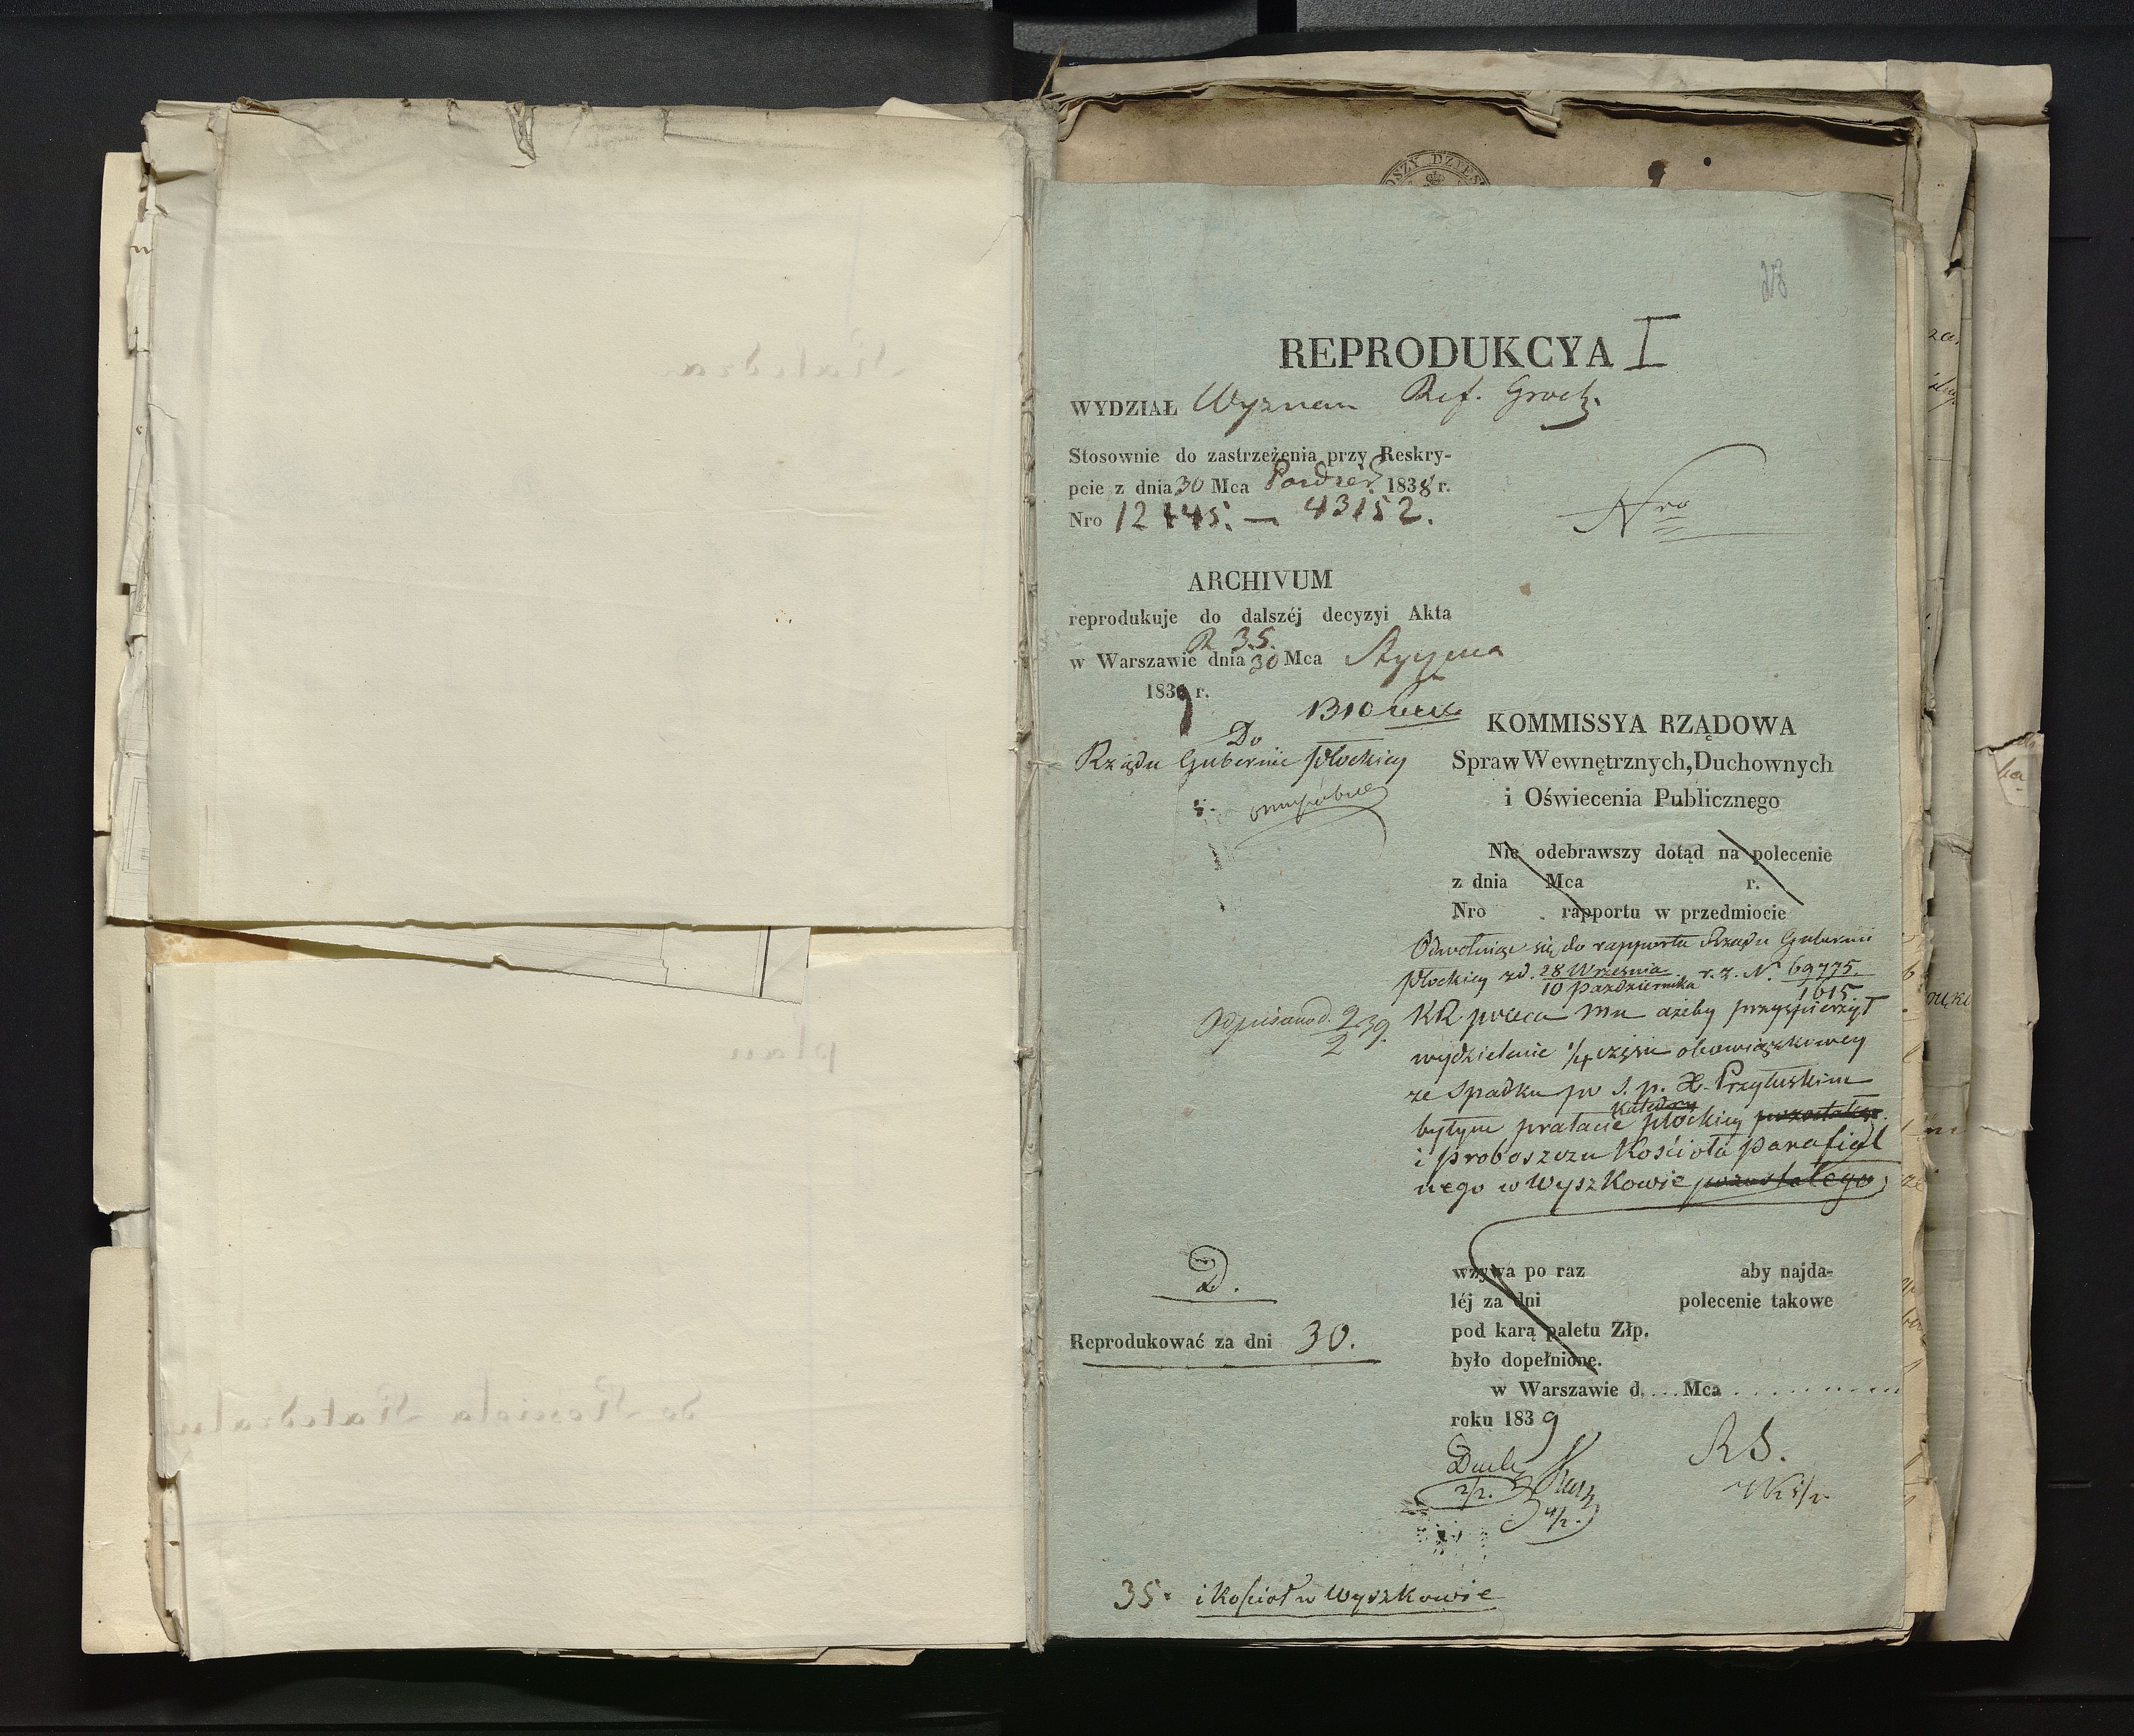 28
REPRODUKCYA I
WYDZIAŁ Wyznan Ref. Groch.
Stosownie do zastrzeżenia przy Reskry-
pcie z dnia 30 Mca Paźdźier 1838 r.
Nro 12445. — 43152.
Nro
ARCHIVUM
reprodukuje do dalszéj decyzyi Akta
R 35.
w Warszawie dnia 30 Mca Stycznia
1839 r.
1310
Do
Rządu Gubernii Płockiey
KOMMISSYA RZĄDOWA
Spraw Wewnętrznych, Duchownych
i Oświecenia Publicznego
Nie odebrawszy dotąd na polecenie
z dnia Mca r.
Nro rapportu w przedmiocie
Odwołując się do rapportu Rządu Gubernii
Płockiey z d. 28 Września / 10 Października r. z. N. 69775. / 1615.
KR poleca mu ażeby przyspieszył
wydzielenie 1/4 części obowiązkowey
ze spadku po ś. p. X. Przyłuskim
byłym prałacie Katedry płockiey
i proboszczu Kościoła parafial
nego w Wyszkowie pozostałego
Odpisano d. 2/2 39.
2.
Reprodukować za dni 30.
wzywa po raz aby najda-
léj za dni polecenie takowe
pod karą paletu Złp.
było dopełnione.
w Warszawie d. ... Mca ..........
roku 1839
RS.
2/2.
4/2.
35. i Kościoł w Wyszkowie
Katedra
plan
do Kosciola Katedralny